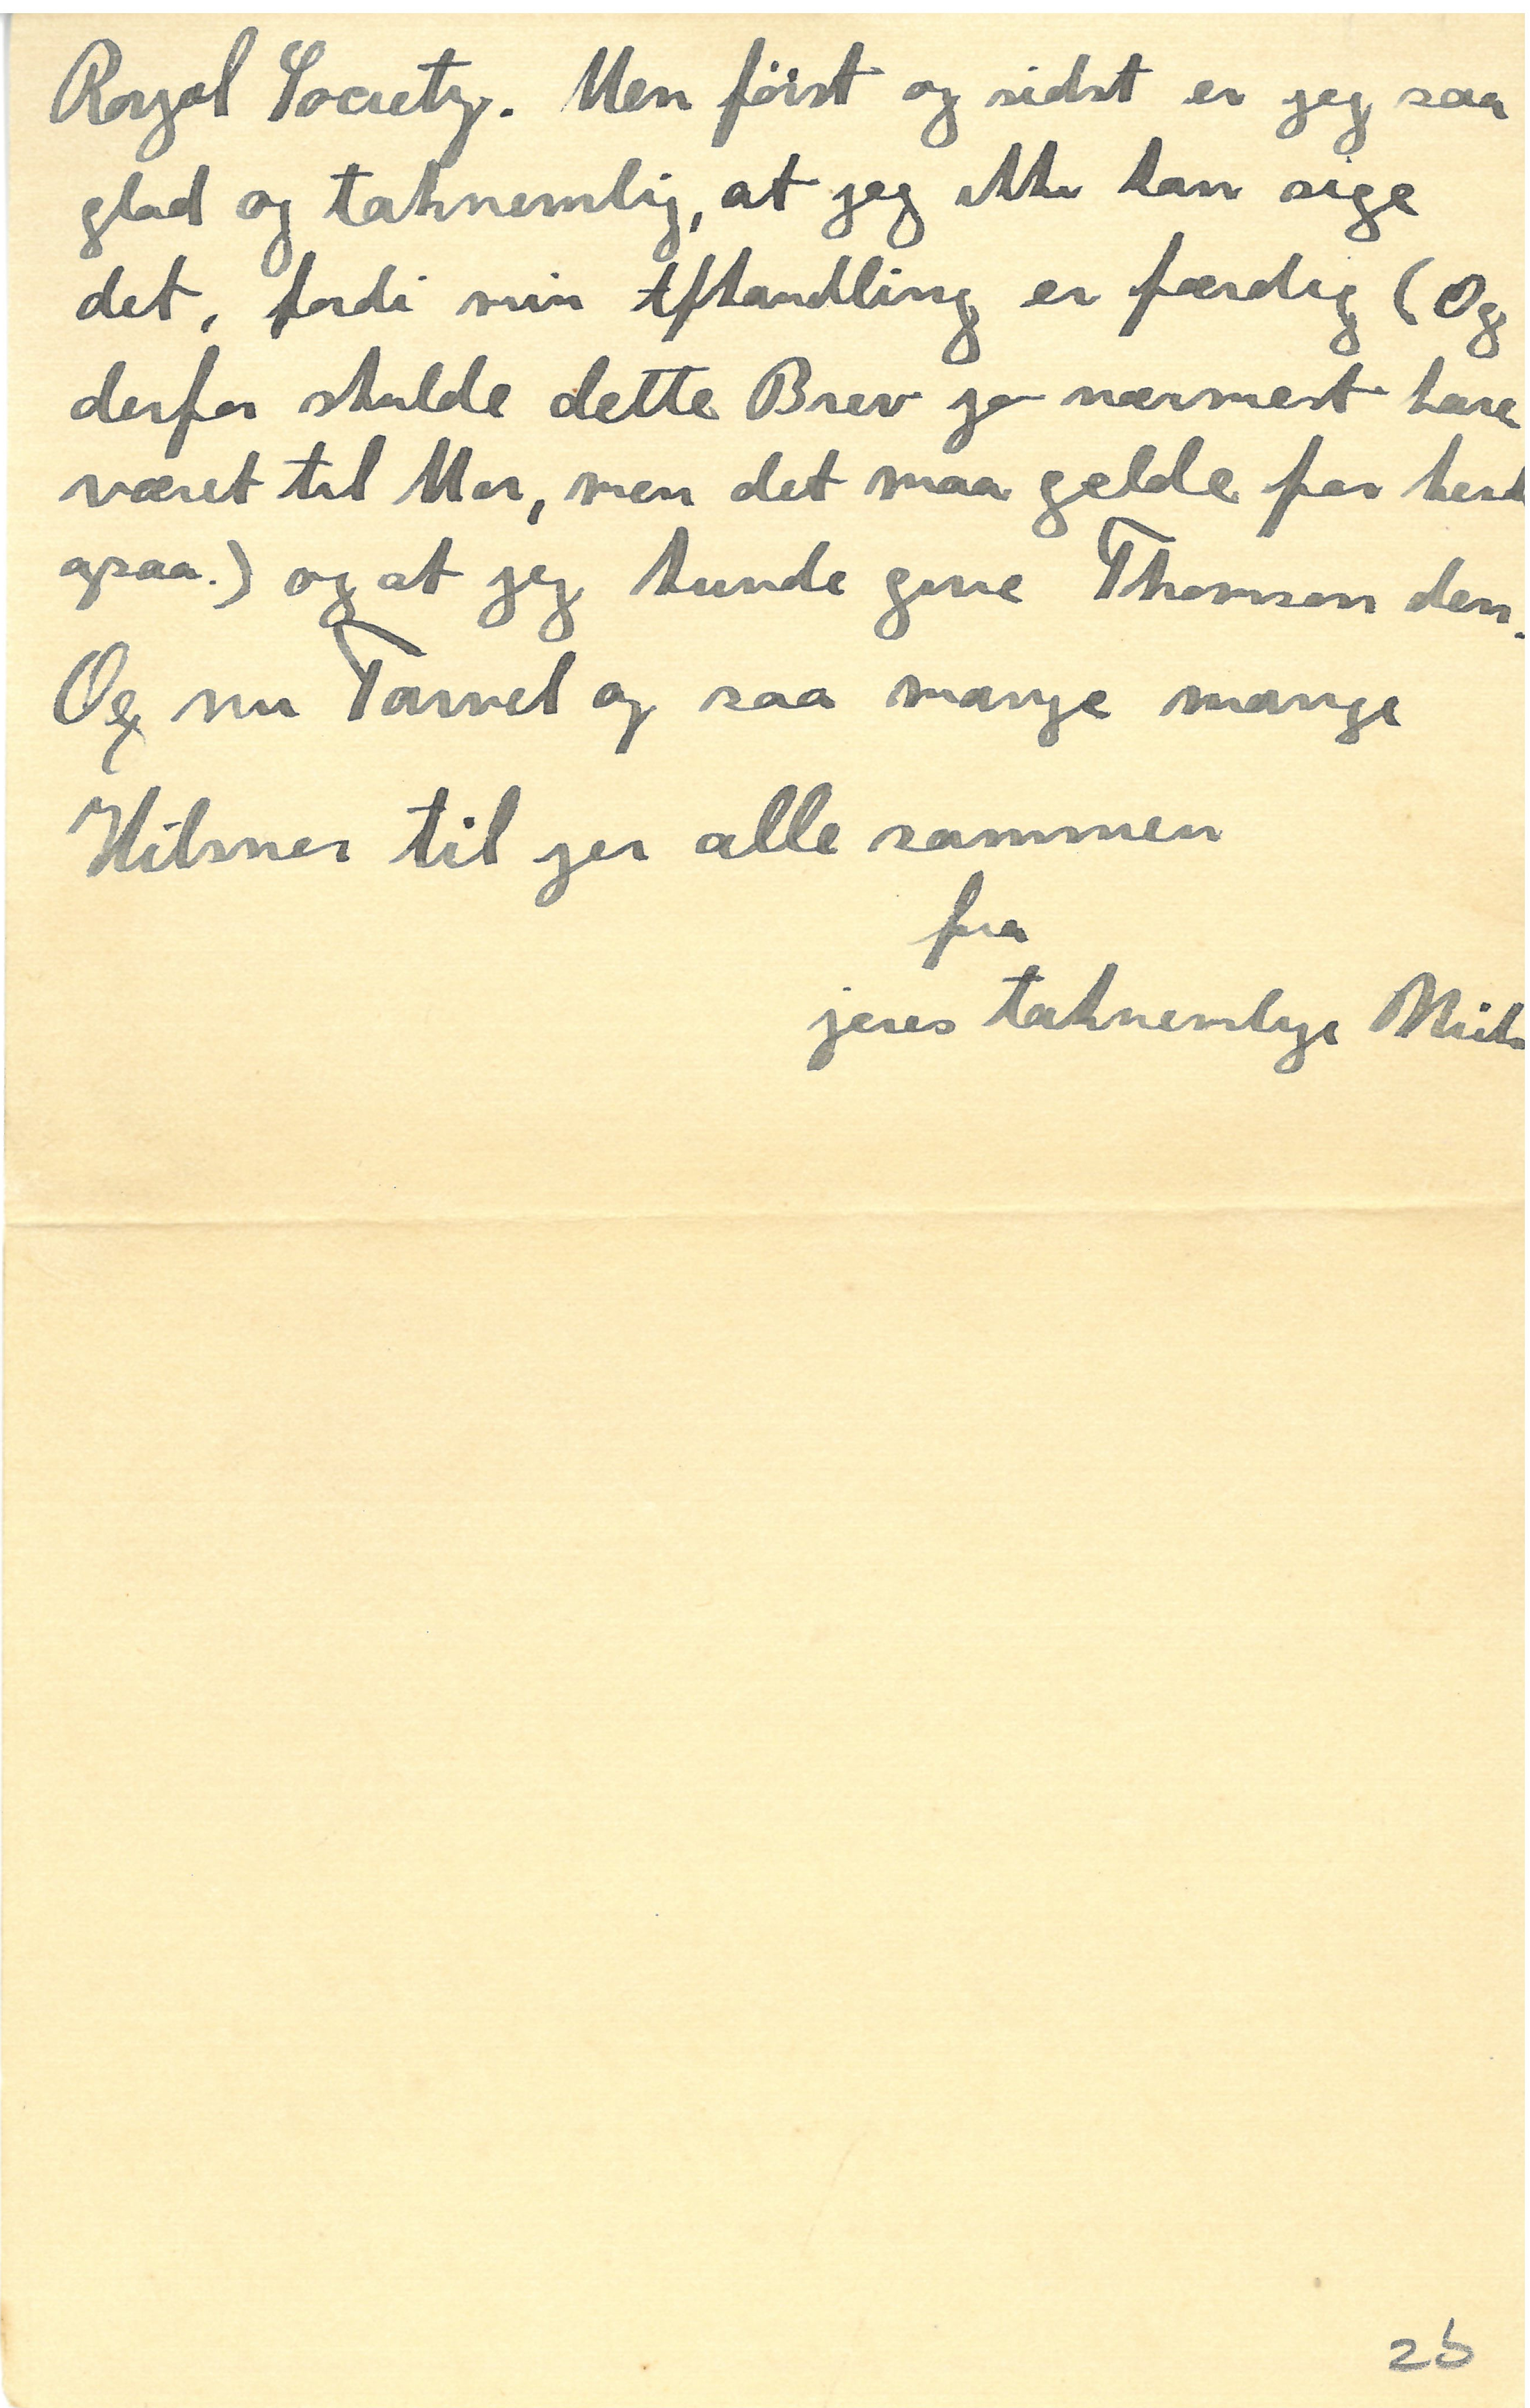 Royal Society. Men först og sidst er jeg saa
glad og taknemlig, at jeg ikke kan sige
det, fordi min Afhandling er færdig (Og
derfor skulde dette Brev jo nærmest have
været til Mor, men det maa gelde for
ogsaa.) og at jeg kunde give Thomson den.
Og nu Farvel og saa mange mange
Hilsner til jer alle sammen
fra
jeres taknemlige Niels
2b